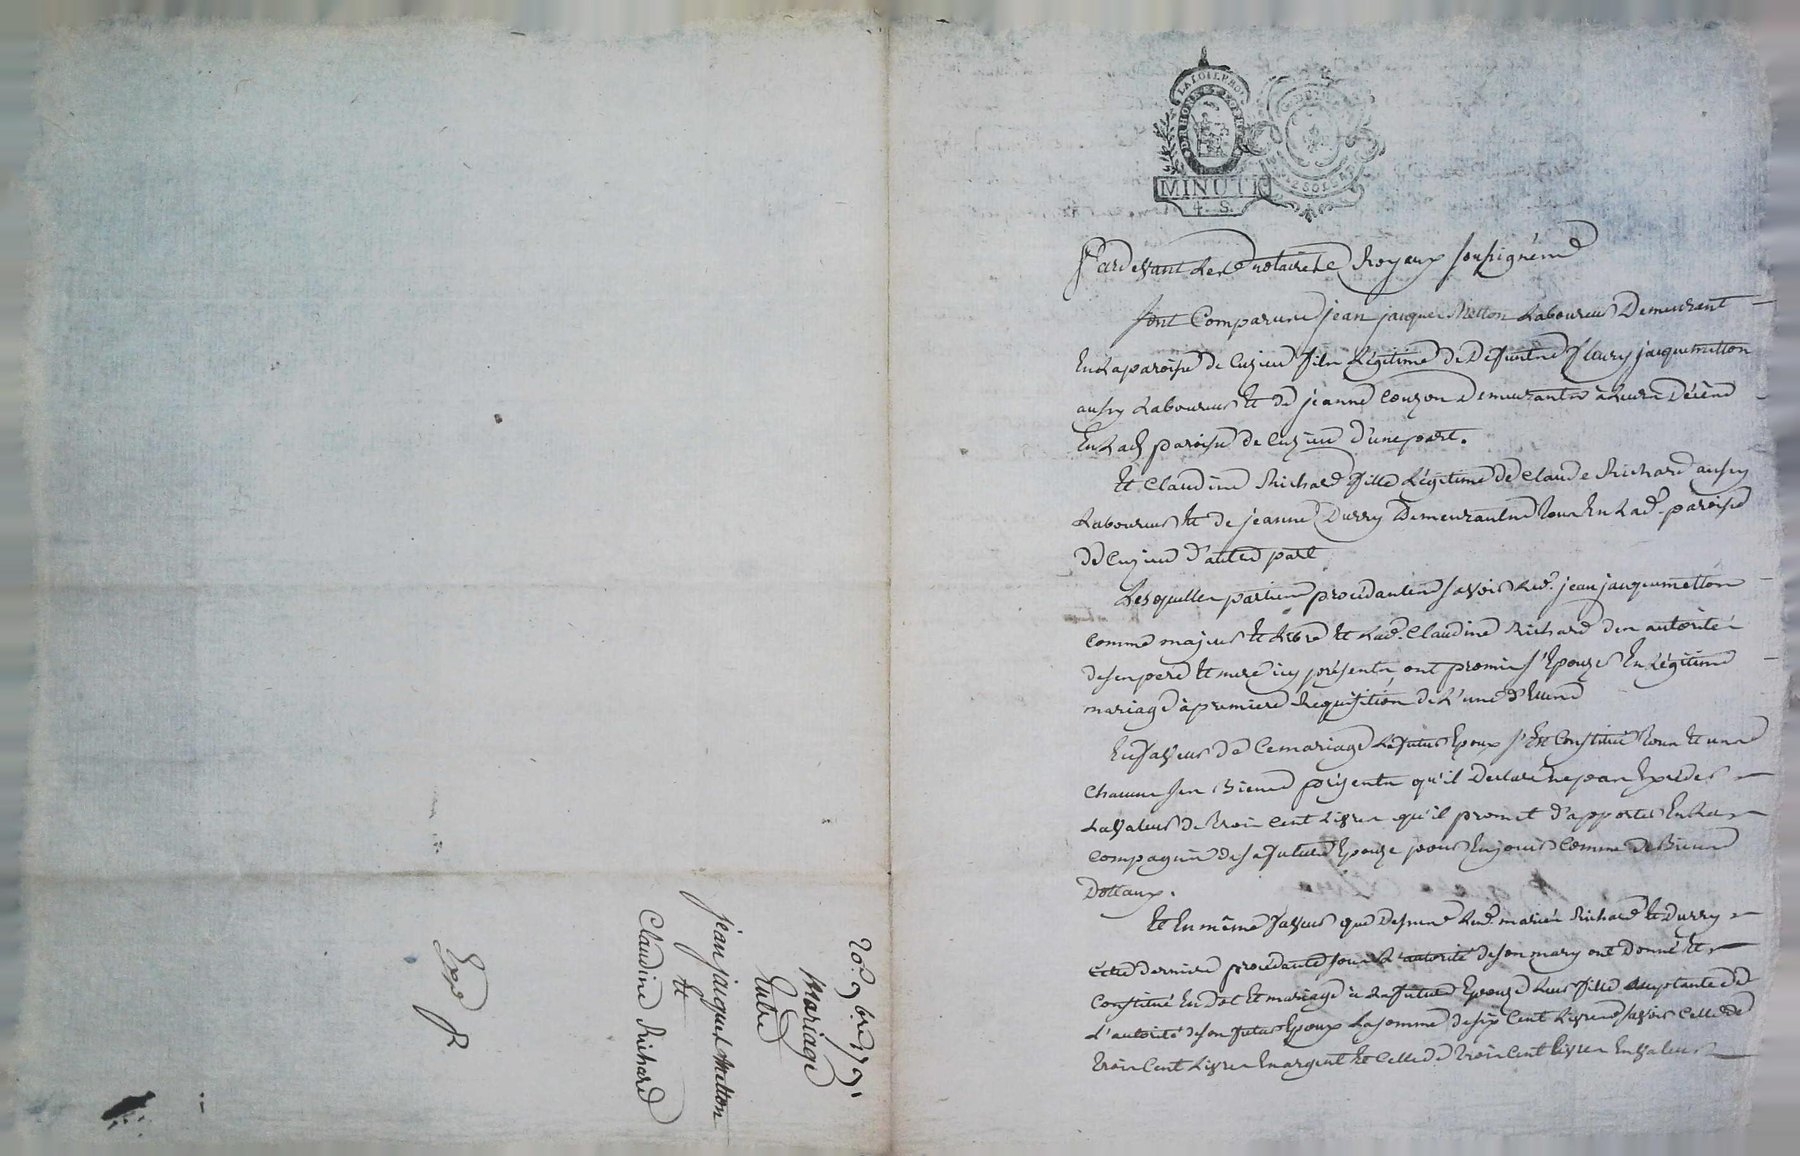 20. 9bre 1791
Mariage
Entre
jean jacques Metton
Et
Claudine Richard
Expé
LA LOI LE ROI
MINUTE
4. S.
Pardevant Les notaires Royaux soussignés
sont Comparus jean jacques Metton Laboureur Demeurant
En La paroisse de Cuzieu fils Légitime de Defunts fleury jacquemetton
aussy Laboureur Et de jeanne Couzon Demeurants à Leurs Décès
En Lad. paroisse de Cuzieu d'une part.
Et Claudine Richard fille Légitime de Claude Richard aussy
Laboureur Et de jeanne Durry Demeurants tous En Lad. paroisse
de Cuzieu d'autre part
Lesquelles parties procédantes savoir Led. jean jacquemetton
comme majeur Et Libre Et Lad. Claudine Richard des autorités
de ses pere Et mere icy présents, ont promis s'Epouser En Légitime
mariage à premiere Requisition de L'une d'Elles
En faveur de Ce mariage Le futur Epoux s'Est Constitué tous Et uns
chacuns ses Biens présents qu'il Declare ne pas Exceder
La valeur de trois cent Livres qu'il promet d'apporter En La
compagnie de sa future Epouze pour En jouir Comme de Biens
Dotaux.
Et En même faveur que Dessus Led. mariés Richard Et Durry
Cette derniere procédante sous L'autorité de son mary ont Donné Et
Constitué En Dot Et mariage à La future Epouze Leur fille acceptante de
L'autorité de son futur Epoux La somme de six Cent Livres savoir Celle de
trois Cent Livres En argent Et Celle de trois Cent Livres En valeur